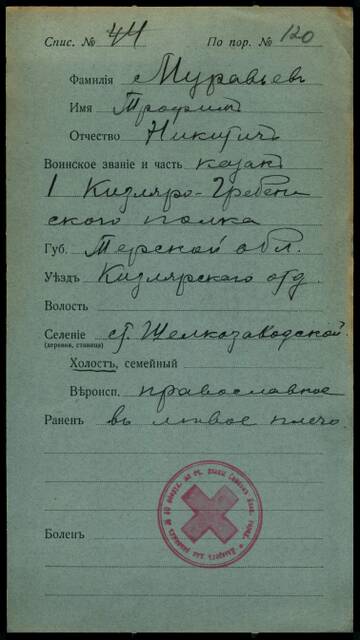 Спис. № 44 По пор. № 120
Фамилія Муравьев
Имя Трофимъ
Отчество Никитичъ
Воинское званіе и часть казакъ
1 Кизляро-Гребен
скаго полка
Губ. Терской обл.
Уѣздъ Кизлярскаго отд.
Волость
Селеніе ст. Щелкозаводской
(деревня, станица)
Холостъ, семейный
Вѣроисп. православное
Раненъ въ лѣвое плечо
Боленъ